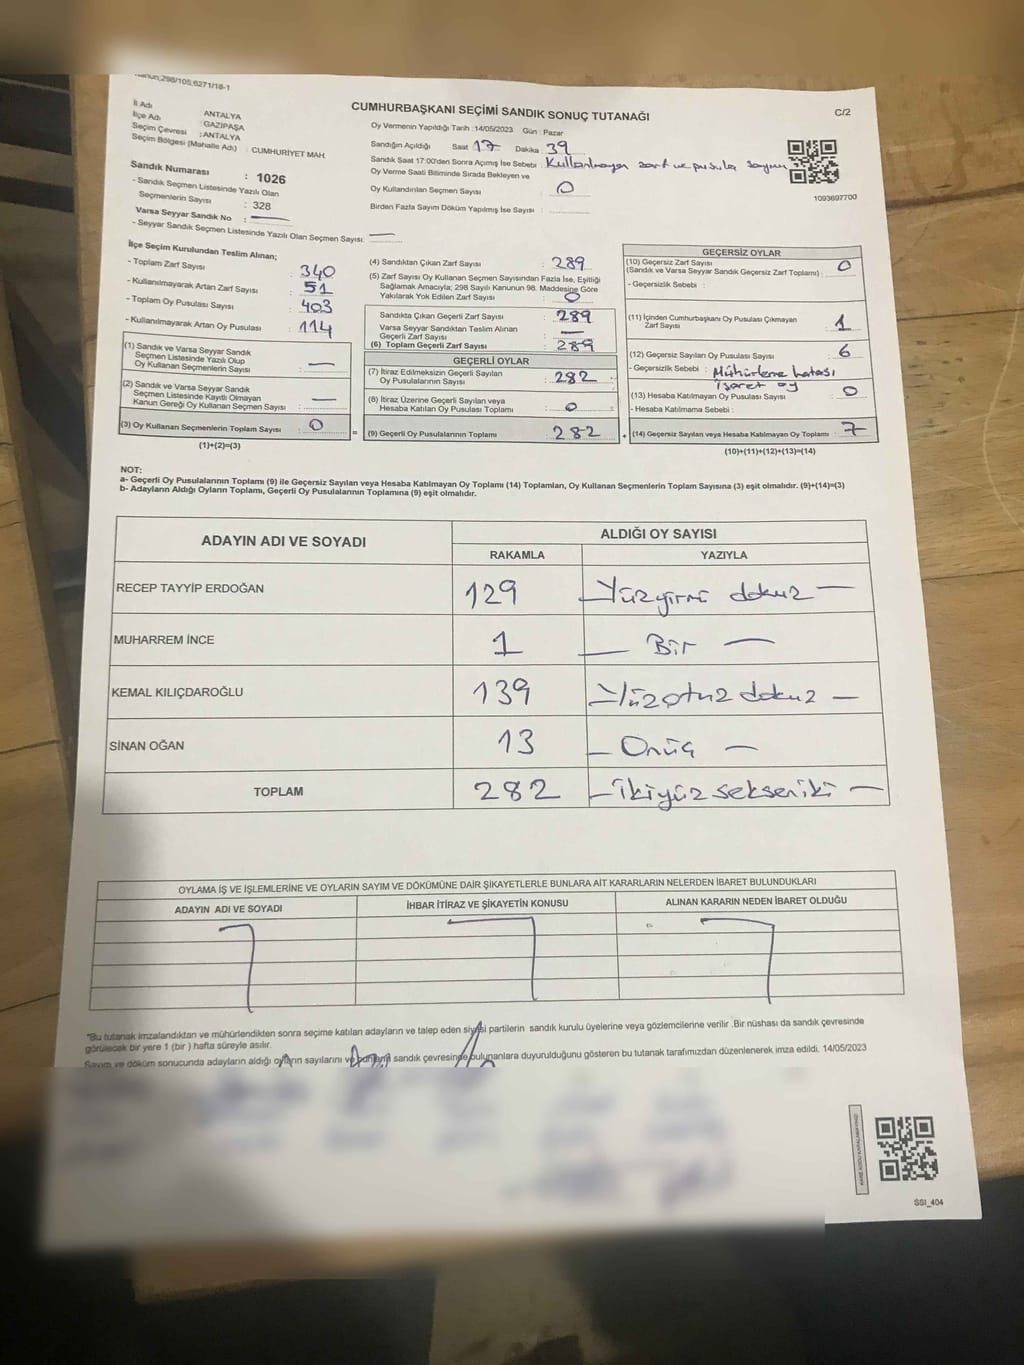 Kanun;298/105;6271/18-1
CUMHURBAŞKANI SEÇİMİ SANDIK SONUÇ TUTANAĞI
C/2
İl Adı : ANTALYA
İlçe Adı : GAZİPAŞA
Seçim Çevresi : ANTALYA
Seçim Bölgesi (Mahalle Adı) : CUMHURİYET MAH.
Sandık Numarası : 1026
- Sandık Seçmen Listesinde Yazılı Olan
Seçmenlerin Sayısı : 328
Varsa Seyyar Sandık No :
- Seyyar Sandık Seçmen Listesinde Yazılı Olan Seçmen Sayısı:
Oy Vermenin Yapıldığı Tarih :14/05/2023 Gün : Pazar
Sandığın Açıldığı Saat 17 Dakika 39
Sandık Saat 17:00'den Sonra Açımış İse Sebebi : Kullanılmayan zarf ve pusula sayımı
Oy Verme Saati Bitiminde Sırada Bekleyen ve
Oy Kullandırılan Seçmen Sayısı : 0
Birden Fazla Sayım Döküm Yapılmış İse Sayısı :
1093697700
İlçe Seçim Kurulundan Teslim Alınan;
- Toplam Zarf Sayısı : 340
- Kullanılmayarak Artan Zarf Sayısı : 51
- Toplam Oy Pusulası Sayısı : 403
- Kullanılmayarak Artan Oy Pusulası : 114
(1) Sandık ve Varsa Seyyar Sandık
Seçmen Listesinde Yazılı Olup
Oy Kullanan Seçmenlerin Sayısı : —
(2) Sandık ve Varsa Seyyar Sandık
Seçmen Listesinde Kayıtlı Olmayan
Kanun Gereği Oy Kullanan Seçmen Sayısı : —
(3) Oy Kullanan Seçmenlerin Toplam Sayısı : 0
(1)+(2)=(3)
(4) Sandıktan Çıkan Zarf Sayısı : 289
(5) Zarf Sayısı Oy Kullanan Seçmen Sayısından Fazla İse, Eşitliği
Sağlamak Amacıyla; 298 Sayılı Kanunun 98. Maddesine Göre
Yakılarak Yok Edilen Zarf Sayısı : 0
Sandıkta Çıkan Geçerli Zarf Sayısı : 289
Varsa Seyyar Sandıktan Teslim Alınan
Geçerli Zarf Sayısı : —
(6) Toplam Geçerli Zarf Sayısı : 289
GEÇERLİ OYLAR
(7) İtiraz Edilmeksizin Geçerli Sayılan
Oy Pusulalarının Sayısı : 282
(8) İtiraz Üzerine Geçerli Sayılan veya
Hesaba Katılan Oy Pusulası Toplamı : 0
= (9) Geçerli Oy Pusulalarının Toplamı 282 +
GEÇERSİZ OYLAR
(10) Geçersiz Zarf Sayısı
(Sandık ve Varsa Seyyar Sandık Geçersiz Zarf Toplamı) : 0
- Geçersizlik Sebebi :
(11) İçinden Cumhurbaşkanı Oy Pusulası Çıkmayan
Zarf Sayısı : 1
(12) Geçersiz Sayılan Oy Pusulası Sayısı : 6
- Geçersizlik Sebebi : Mühürleme hatası
İşaret oy
(13) Hesaba Katılmayan Oy Pusulası Sayısı : 0
- Hesaba Katılmama Sebebi :
(14) Geçersiz Sayılan veya Hesaba Katılmayan Oy Toplamı : 7
(10)+(11)+(12)+(13)=(14)
NOT:
a- Geçerli Oy Pusulalarının Toplamı (9) ile Geçersiz Sayılan veya Hesaba Katılmayan Oy Toplamı (14) Toplamları, Oy Kullanan Seçmenlerin Toplam Sayısına (3) eşit olmalıdır. (9)+(14)=(3)
b- Adayların Aldığı Oyların Toplamı, Geçerli Oy Pusulalarının Toplamına (9) eşit olmalıdır.
ADAYIN ADI VE SOYADI ALDIĞI OY SAYISI
RAKAMLA YAZIYLA
RECEP TAYYİP ERDOĞAN 129 — Yüzyirmi dokuz —
MUHARREM İNCE 1 — Bir —
KEMAL KILIÇDAROĞLU 139 — Yüzotuz dokuz —
SİNAN OĞAN 13 — Onüç —
TOPLAM 282 — ikiyüz sekseniki —
OYLAMA İŞ VE İŞLEMLERİNE VE OYLARIN SAYIM VE DÖKÜMÜNE DAİR ŞİKAYETLERLE BUNLARA AİT KARARLARIN NELERDEN İBARET BULUNDUKLARI
ADAYIN ADI VE SOYADI İHBAR İTİRAZ VE ŞİKAYETİN KONUSU ALINAN KARARIN NEDEN İBARET OLDUĞU
"Bu tutanak imzalandıktan ve mühürlendikten sonra seçime katılan adayların ve talep eden siyasi partilerin sandık kurulu üyelerine veya gözlemcilerine verilir .Bir nüshası da sandık çevresinde
görülecek bir yere 1 (bir ) hafta süreyle asılır.
Sayım ve döküm sonucunda adayların aldığı oyların sayılarını ve bunların sandık çevresinde bulunanlara duyurulduğunu gösteren bu tutanak tarafımızdan düzenlenerek imza edildi. 14/05/2023
SSI_404